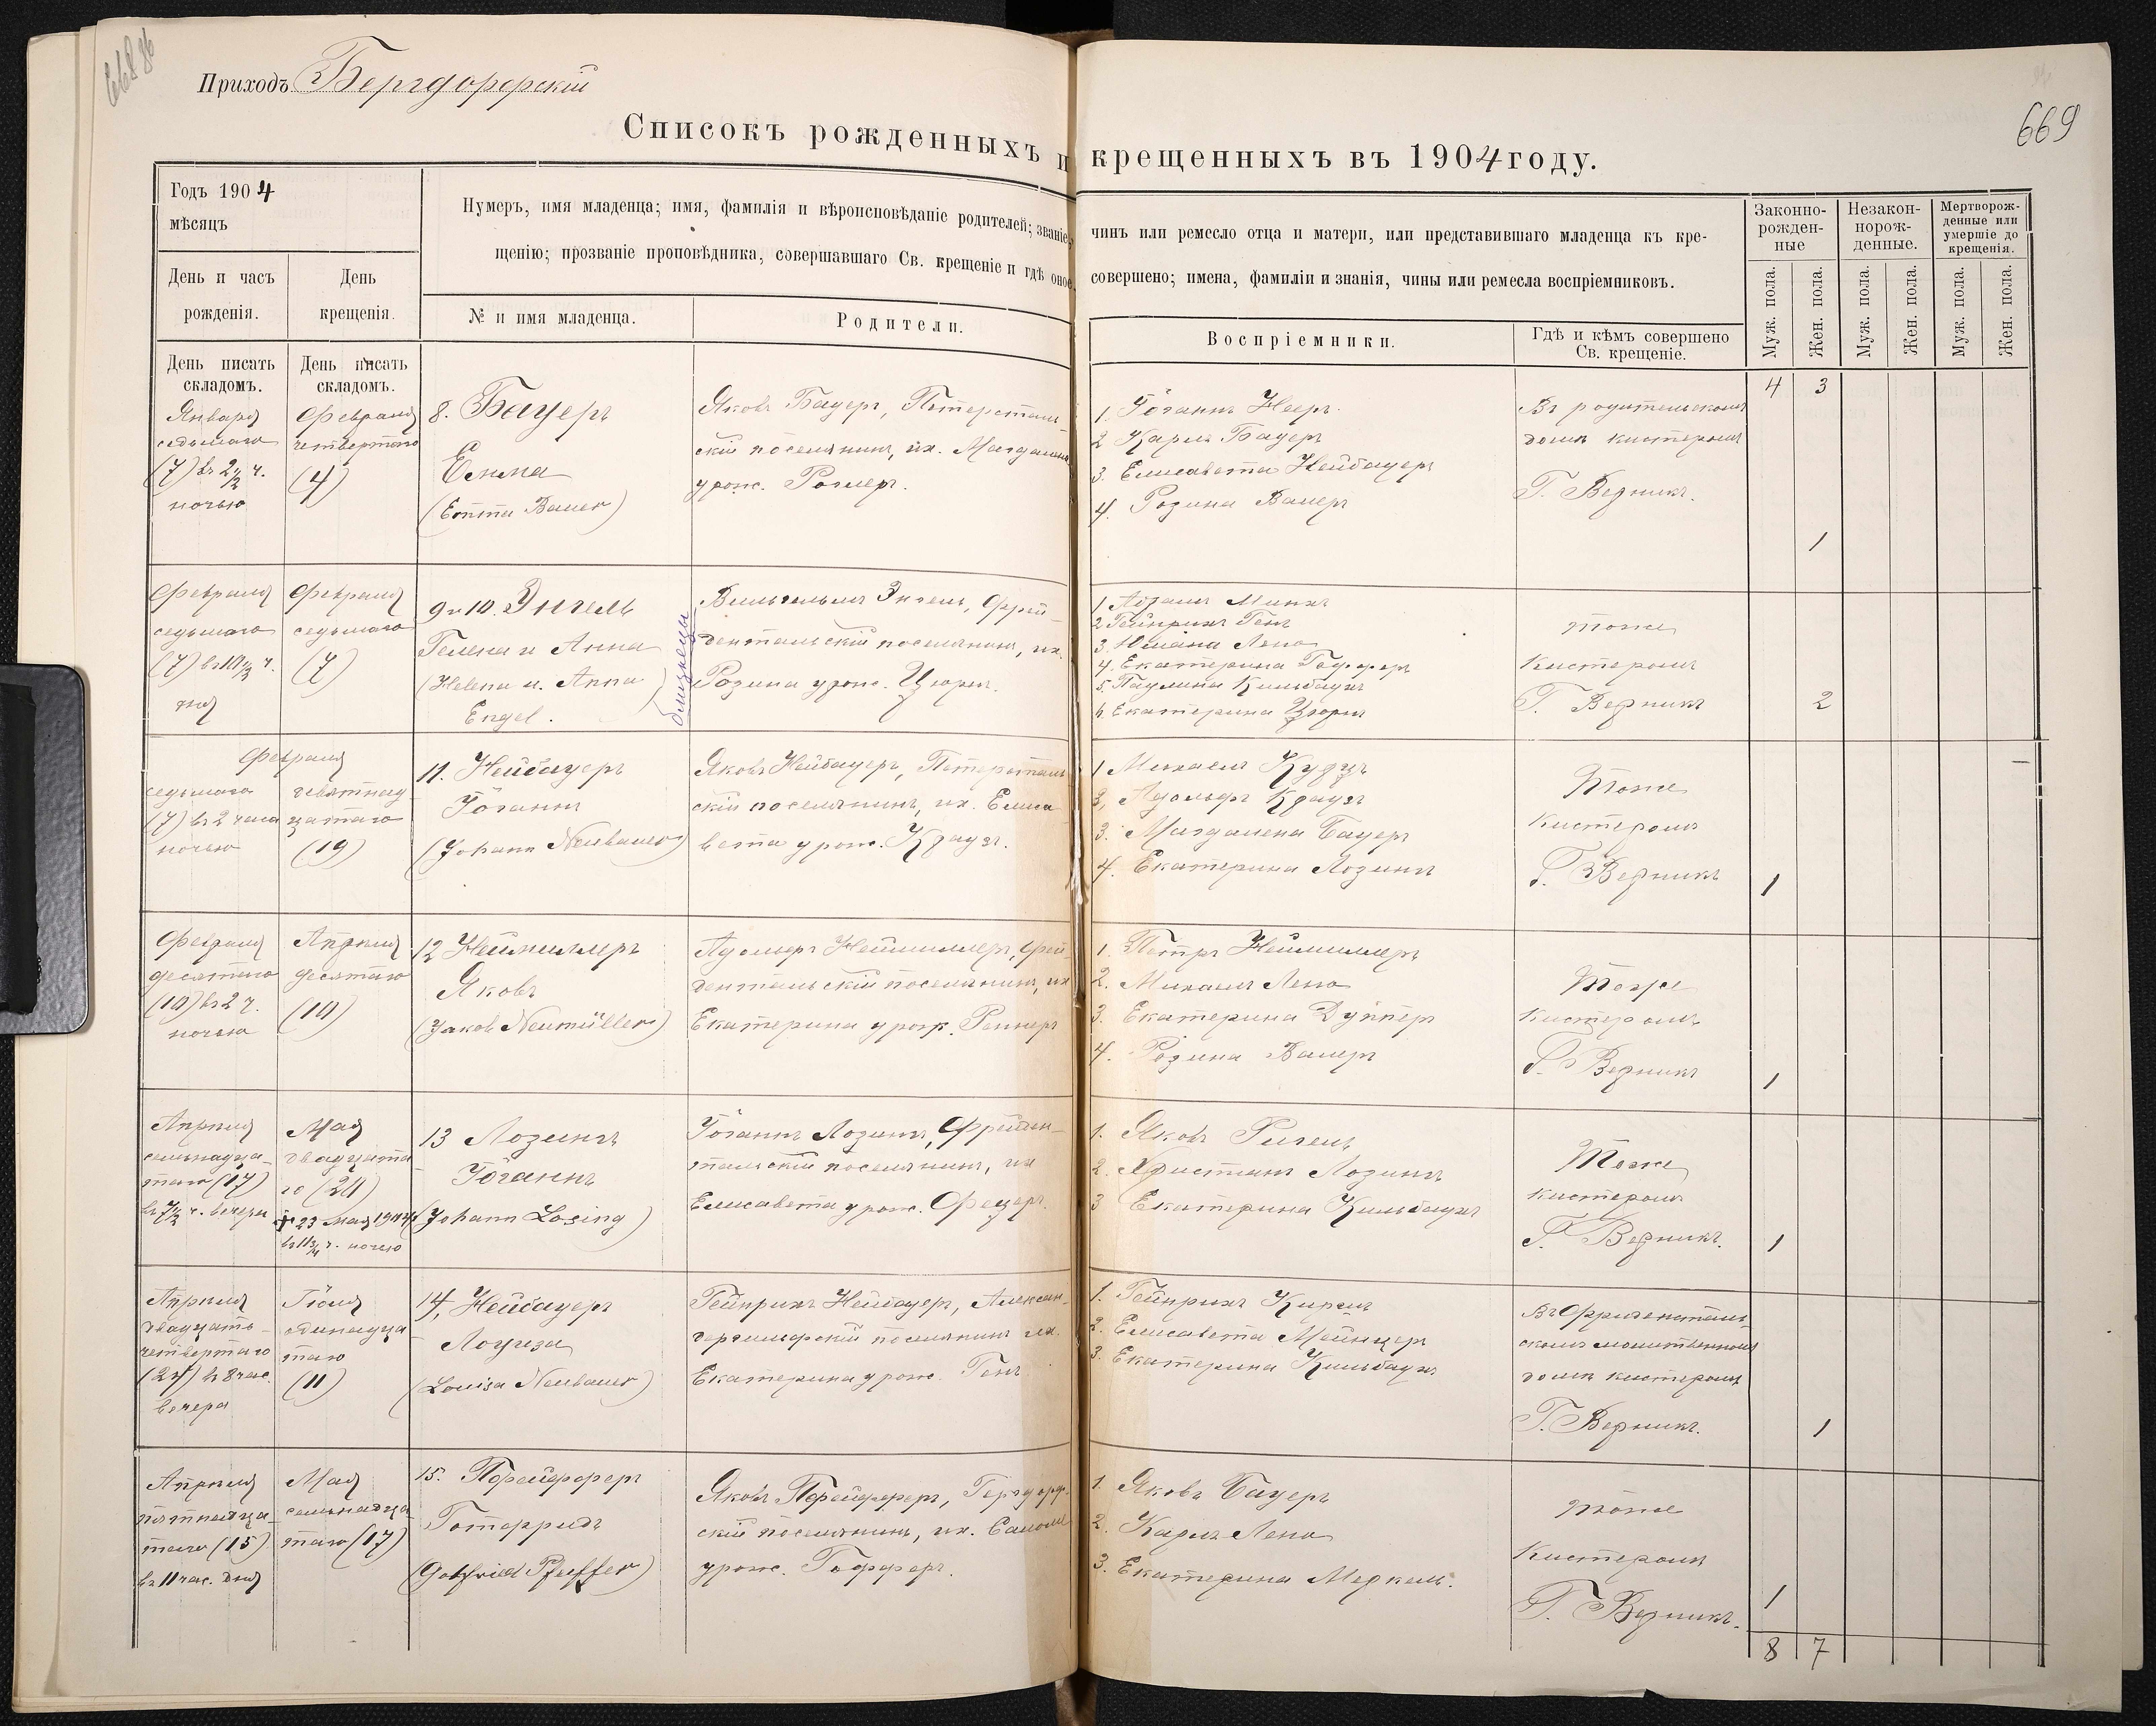 668
Приходъ Бергдорфскій
669
Списокъ рожденныхъ и крещенныхъ въ 1904 году.
Годъ 1904
мѣсяцъ
День и часъ
рожденія.
День
крещенія.
Нумеръ, имя младенца; имя, фамилія и вѣроисповѣданіе родителей; званіе, чинъ или ремесло отца и матери, или представившаго младенца къ кре-
щенію; прозваніе проповѣдника, совершавшаго Св. крещеніе и гдѣ оное совершено; имена, фамиліи и знанія, чины или ремесла воспріемниковъ.
№ и имя младенца.
Родители.
Воспріемники.
Гдѣ и кѣмъ совершено
Св. крещеніе.
Законно-
рожден-
ные
Незакон-
норож-
денные.
Мертворож-
денные или
умершіе до
крещенія.
Муж. пола.
Жен. пола.
Муж. пола.
Жен. пола.
Муж. пола.
Жен. пола.
День писать
складомъ.
День писать
складомъ.
4 3
Января
седьмаго
(7) въ 2 1/2 ч.
ночью
Февраля
четвертаго
(4)
8. Бауеръ
Емма
(Emma Bauer)
Яковъ Бауеръ, Петерсталь-
скій поселянинъ, их. Магдалена
урож. Ромеръ.
1. Іоганнъ Нееръ
2 Карлъ Бауеръ
3. Елисавета Нейбауеръ
4. Розина Валеръ
Въ родительскомъ
домѣ кистеромъ
Г. Верникъ.
1
Февраля
седьмаго
(7)
дня
Февраля
седьмаго
(7)
9 и 10. Энгель
Гелена и Анна
(Helena u. Anna)
Engel.
близнецы
Вильгельмъ Энгель, Фрей-
дентальскій поселянинъ, их.
Розина урож. Цюрнъ.
1 Адамъ Минхъ
2 Гейнрихъ Генъ
3. Юліана Лено
4. Екатерина Гофферъ
5. Паулина Кильбаухъ
6. Екатерина Цюрнъ
тоже
кистеромъ
Г. Верникъ
2
Февраля
седьмаго
(7) въ 2 часа
ночью
девятнад
цатаго
(19)
11. Нейбауеръ
Іоганнъ
(Johann Neubauer)
Яковъ Нейбауеръ, Петерсталь-
скій поселянинъ, их. Елиса-
вета урож. Краузъ.
1 Михаелъ Кудцъ
2, Адольфъ Краузъ
3. Магдалена Бауеръ
4. Екатерина Лозингъ
Тоже
кистеромъ
Г. Верникъ
1
Февраля
десятаго
(10) въ 2 ч.
ночью
Апрѣля
десятаго
(10)
12 Неймиллеръ
Яковъ
(Jakob Neumüller)
Адольфъ Неймиллеръ, Фрей-
дентальскій поселянинъ, их
Екатерина урож. Реннеръ
1. Петръ Неймиллеръ
2. Михаелъ Лено
3. Екатерина Дупперъ
4. Розина Валеръ
Тоже
кистеромъ
Г. Верникъ
1
Апрѣля
семьнадца-
таго (17)
въ 7 1/2 ч. вечера
Мая
двадцата
го (20)
† 23 мая 1904
въ 11 3/4 ч. ночью
13 Лозингъ
Іоганнъ
(Johann Losing)
Іоганнъ Лозингъ, Фрейден-
тальскій поселянинъ, их
Елисавета урож. Фецеръ.
1. Яковъ Ригель
2. Христіанъ Лозингъ
3 Екатерина Кильбаухъ
Тоже
кистеромъ
Г. Верникъ.
1
Апрѣля
двадцать-
четвертаго
(24) въ 8 час.
вечера
Іюня
одинадца
таго
(11)
14, Нейбауеръ
Лоуиза
(Louisa Neubauer)
Гейнрихъ Нейбауеръ, Алексан-
дергильфскій поселянинъ их.
Екатерина урож. Генъ
1. Гейнрихъ Киргиъ
2. Елисавета Мейнцеръ
3. Екатерина Кильбаухъ
Въ Фрейденталь-
скомъ молитвенномъ
домѣ кистеромъ
Г. Верникъ.
1
Апрѣля
пятнадца-
таго (15)
въ 11 час. дня
Мая
семьнадца
таго (17)
15. Пфейфферъ
Готфридъ
(Gottfried Pfeiffer)
Яковъ Пфейфферъ, Бергдорф-
скій поселянинъ, их. Саломе
урож. Гофферъ.
1. Яковъ Бауеръ
2. Карлъ Лено
3. Екатерина Меркель.
тоже
кистеромъ
Г. Верникъ.
1
8 7